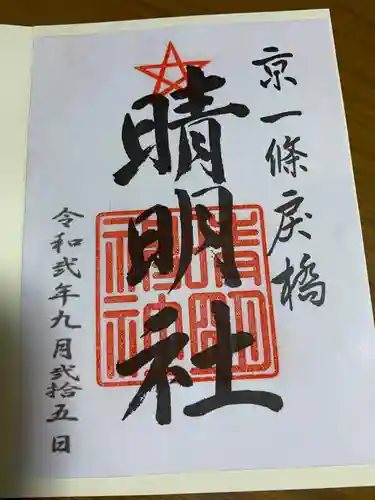 京一條戻橋
晴明社
晴明神社
令和弐年九月弐拾五日